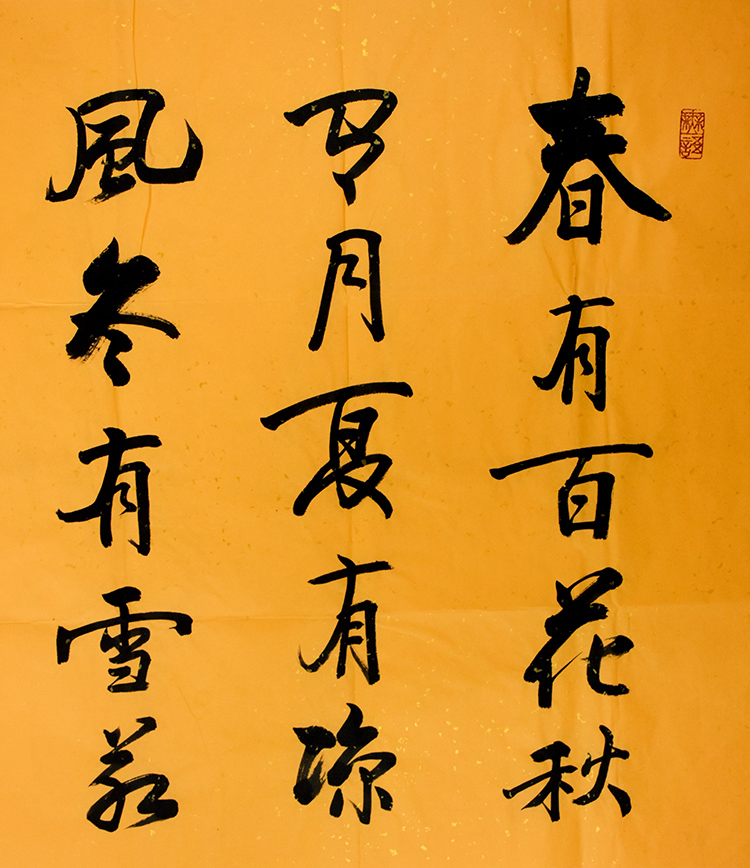 春有百花秋
有月夏有凉
風冬有雪若